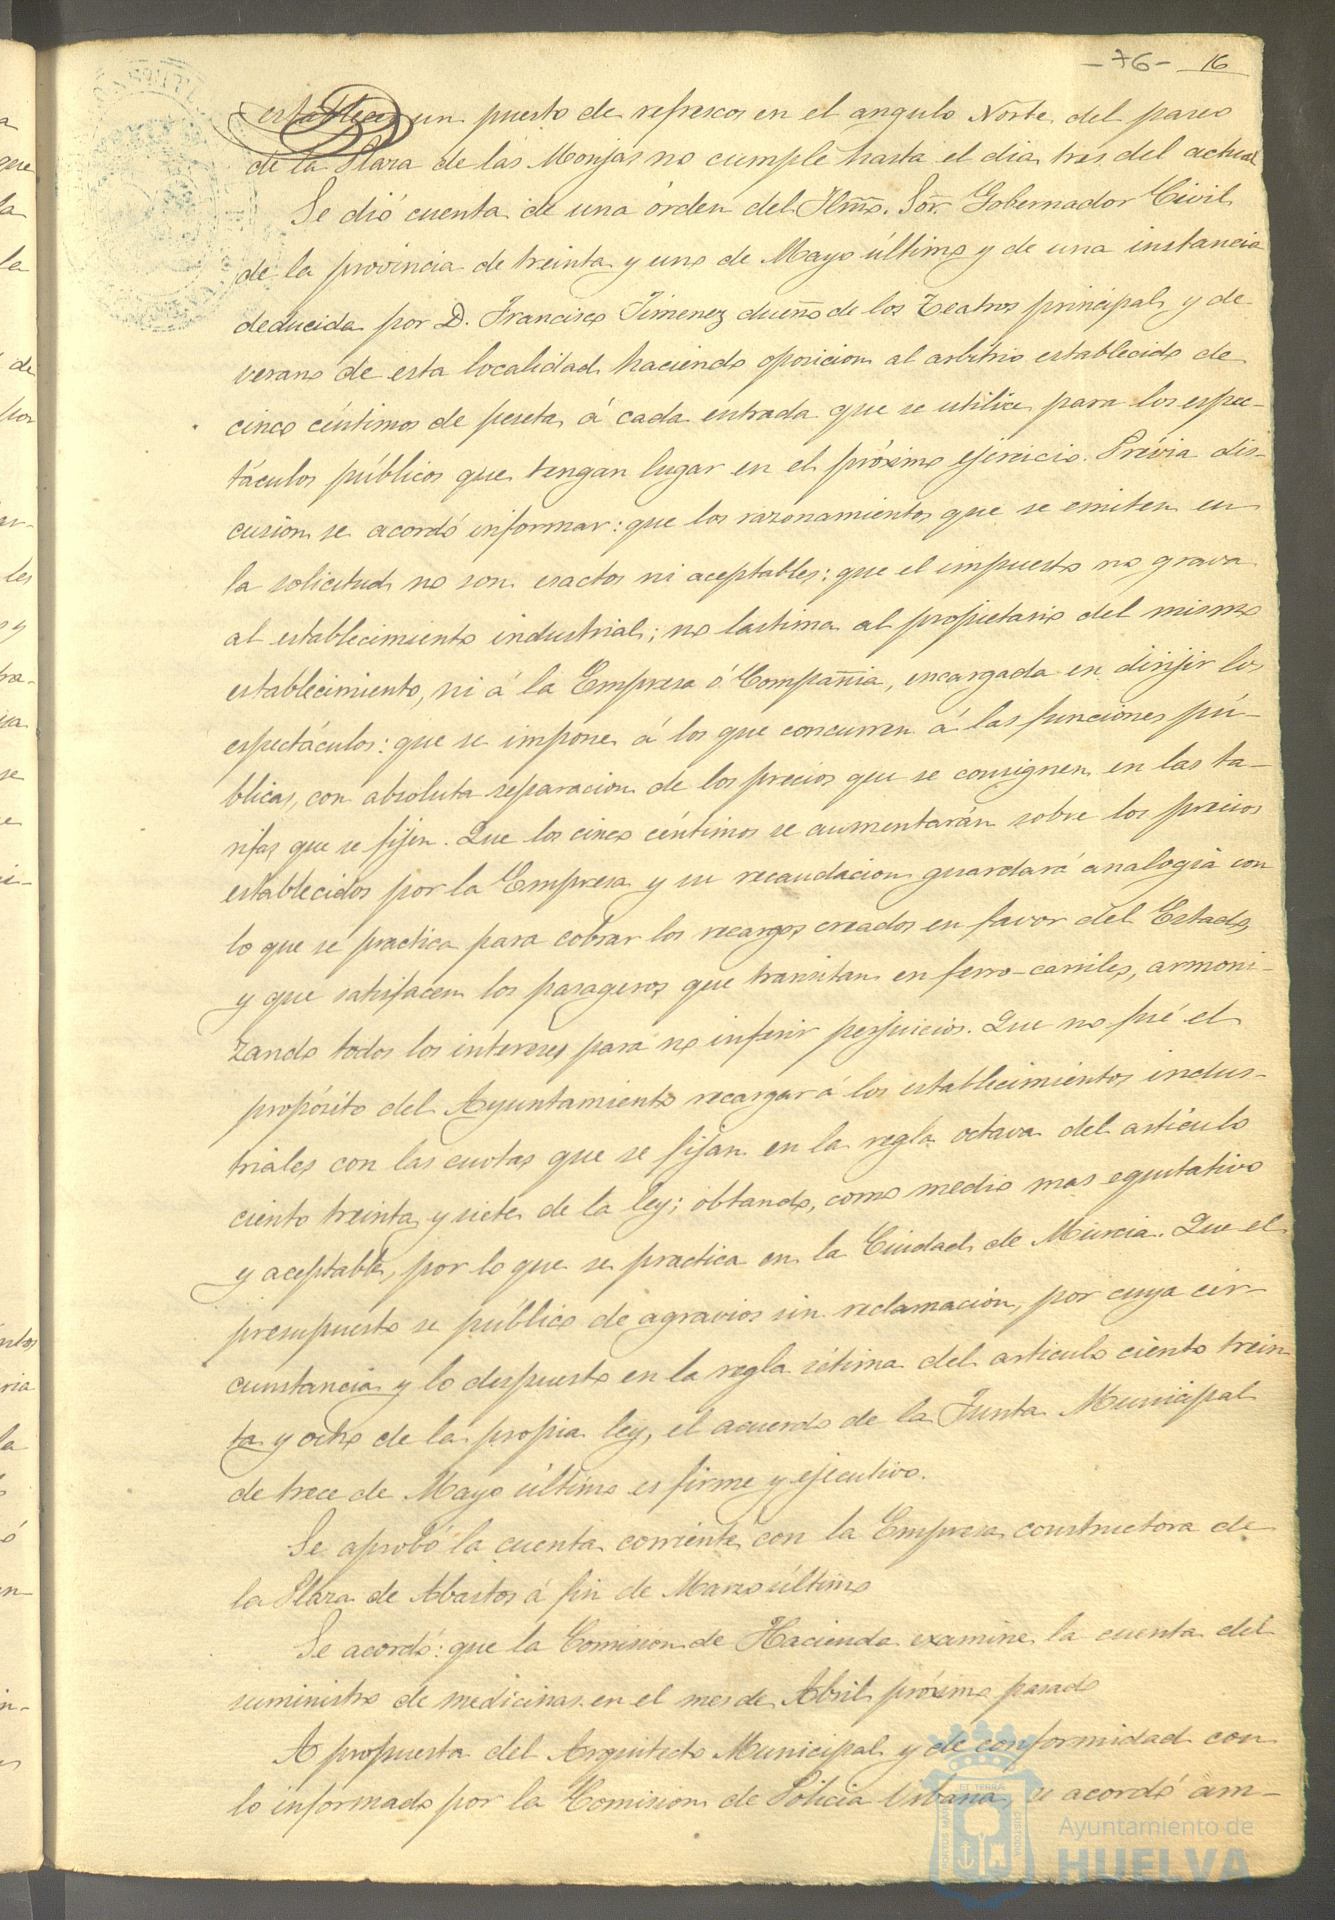 -76- 16
establecer un puesto de refrescos en el angulo Norte del paseo
de la Plaza de las Monjas no cumple hasta el dia tres del actual
Se dió cuenta de una órden del Iltmo. Sor. Gobernador Civil
de la provincia de treinta y uno de Mayo último y de una instancia
deducida por D. Francisco Jimenez dueño de los Teatros principal y de
verano de esta localidad haciendo oposicion al arbitrio establecido de
cinco céntimos de peseta á cada entrada que se utilice para los espec-
táculos públicos que tengan lugar en el próximo ejercicio. Prévia dis-
cusion se acordó informar: que los razonamientos que se emiten en
la solicitud no son esactos ni aceptables: que el impuesto no grava
al establecimiento industrial; no lastima al propietario del mismo
establecimiento, ni á la Empresa ó Compañia, encargada en dirijir los
espectáculos: que se impone á los que concurren á las funciones pú-
blicas, con absoluta separacion de los precios que se consignen en las ta-
rifas que se fijen. Que los cinco céntimos se aumentarán sobre los precios
establecidos por la Empresa y su recaudacion guardará analogia con
lo que se practica para cobrar los recargos creados en favor del Estado,
y que satisfacen los pasageros que transitan en ferro-carriles, armoni-
zando todos los intereses para no inferir perjuicios. Que no fué el
propósito del Ayuntamiento recargar á los establecimientos indus-
triales con las cuotas que se fijan en la regla octava del artículo
ciento treinta y siete de la ley; obtando, como medio mas equitativo
y aceptable, por lo que se practica en la Ciudad de Murcia. Que el
presupuesto se público de agravios sin reclamación, por cuya cir-
cunstancia y lo despuesto en la regla sétima del articulo ciento trein
ta y ocho de la propia ley, el acuerdo de la Junta Municipal
de trece de Mayo último es firme y ejecutivo.
Se aprobó la cuenta corriente con la Empresa constructora de
la Plaza de Abastos á fin de Marzo último
Se acordó: que la Comision de Hacienda examine la cuenta del
suministro de medicinas en el mes de Abril próximo pasado
A propuesta del Arquitecto Municipal y de conformidad con
lo informado por la Comision de Policia Urbana se acordó am-
Ayuntamiento de
HUELVA